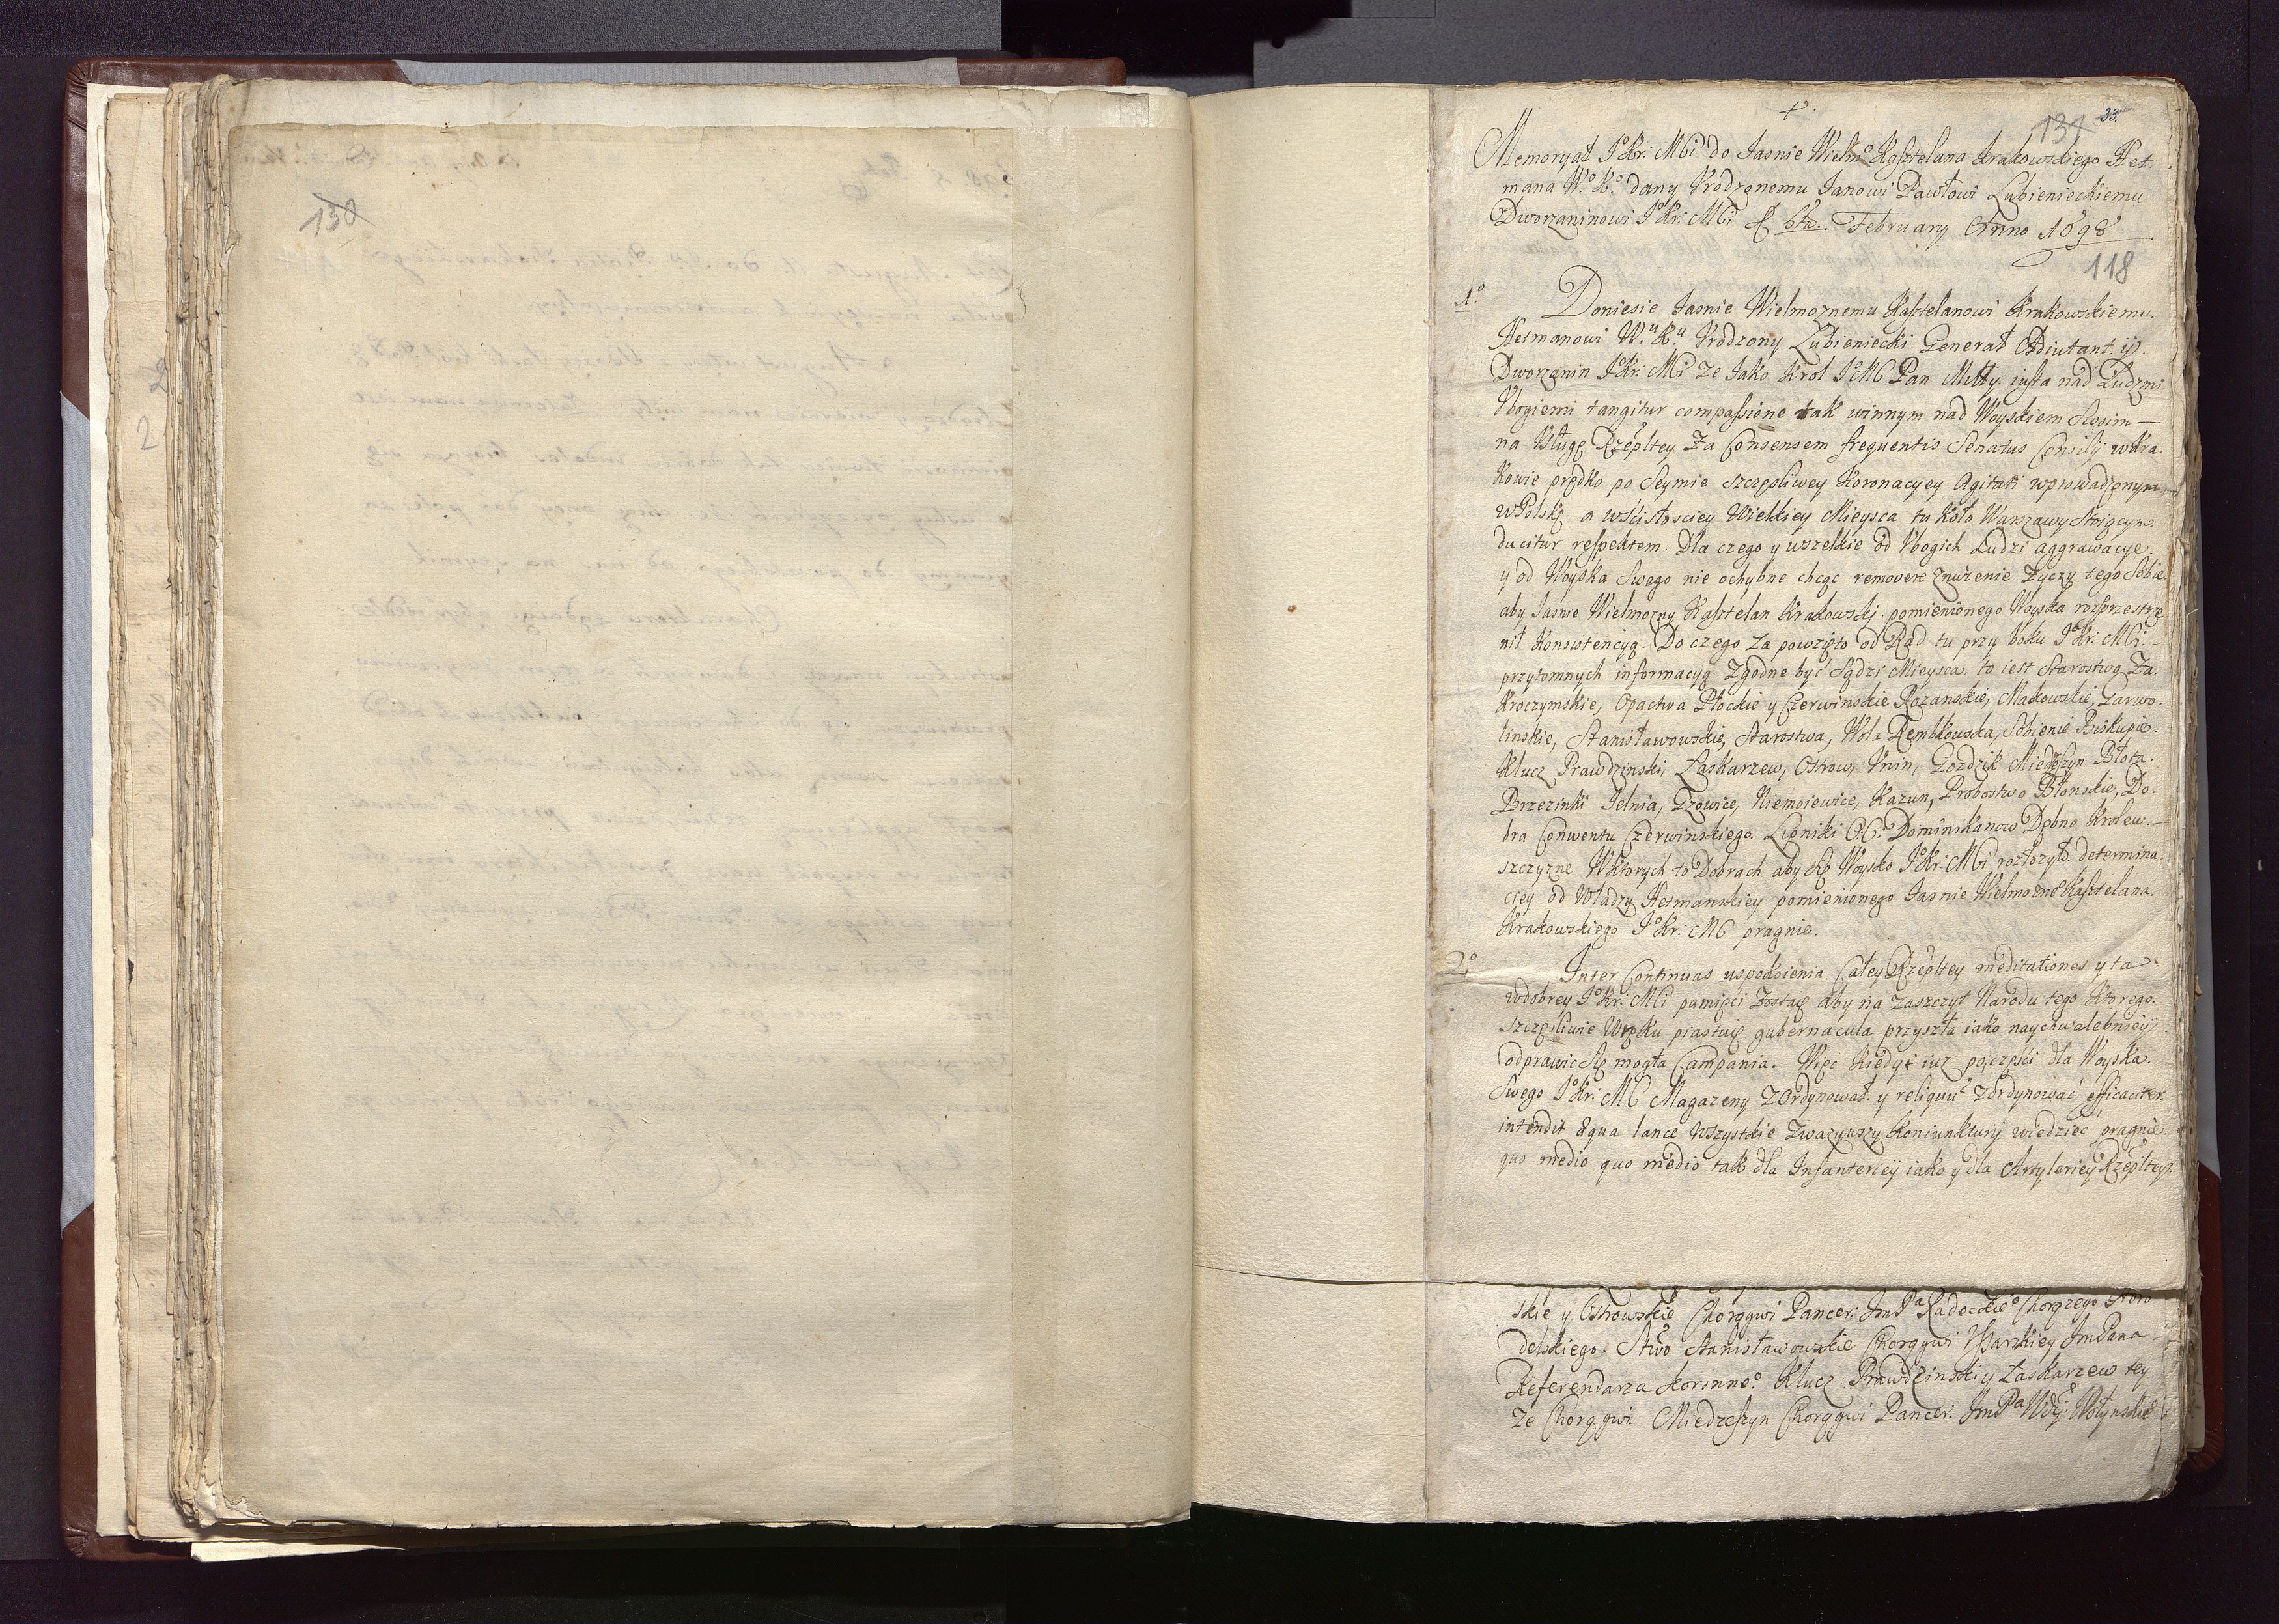 130
2
+
131 33.
Memoryał Jo Kr: Mci do Jasnie Wielmo Kasztelana Krakowskiego Het-
mana Wo Ko dany Vrodzonemu Janowi Pawłowi Lubienieckiemu
Dworzaninowi Jo Kr: Mci 6ta February Anno 1698
118
1o Doniesie Jasnie Wielmoznemu Kasztelanowi Krakowskiemu
Hetmanowi Wu Ku Vrodzony Lubieniecki Generał Adiutant. y
Dworzanin Jo Kr: Mci Ze Jako Krol Jo M Pan Miłły. iusta nad Ludzmi
Vbogiemi tangitur compassione tak winnym nad Woyskiem Swoim
na Vsługę Rzeptey Za Consensem frequentis Senatus Consilij w Kra-
kowie prędko po Seymie szczęsliwey Koronacyey Agitati wprowadzonym
w Polskę a w scisłosciey Wielkiey Mieysca tu Koło Warszawy Stoiącym
ducitur respektem. Dla czego y wszelkie od Vbogich Ludzi aggrawacye
y od Woyska Swego nie ochybne chcąc removere znużenie Zyczy tego Sobie
aby Jasnie Wielmozny Kasztelan Krakowskj pomienionego Woyska rozprzestrze
nił Konsistencyą. Do czego za powzięto od Rad tu przy boku Jo Kr: Mci
przytomnych informacyą Zgodne być Sądzi Mieysca to iest Starostwo Za-
kroczymskie, Opactwa Płockie y Czerwinskie Rozanskie, Makowskie, Garwo-
linskie, Stanisławowskie, Starostwa, Wola Rembkowska, Sobienie Biskupie
Klucz Prawdzinski, Łaskarzew, Ostrow, Vnin, Gozdzik Miedzeszyn Błota
Brzezinki Jelnia, Gzowice, Niemoiewice, Kazun, Probostwo Błonskie, Do-
bra Conwentu Czerwinskiego. Lipniki OO. Dominikanow Dębno Krolew-
szczyzne W ktorych to Dobrach aby Się Woysko Jo Kr: Mci rozłozyło determina-
ciey od Władzy Hetmanskiey pomienionego Jasnie Wielmozno Kasztelana
Krakowskiego Jo Kr: M pragnie.
2o Inter Continuas uspokoienia Całey Rzeptey meditationes y ta
w dobrey Jo Kr: Mci pamięci Zostaie aby na Zaszczyt Narodu tego Ktorego
szczęsliwie W ręku piastuie gubernacula przyszła iako naychwalebnieÿ
odprawic Się mogła Campania. Więc Kiedy iuz po części dla Woyska
Swego Jo Kr: M Magazeny Zordynował y reliquũ Zordynować efficaciter
intendit Æqua lance Wszystkie Zwazywszy Koniunktury wiedziec pragnie
quo medio quo medio tak dla Infanteriey iako y dla Artyleriey Rzeptey
skie y Ostrowskie Chorągwi Pancer: Jm Pa Radeckieo Chorązego Horo
delskiego. Stwo Stanisławowskie Chorągwi Vsarskiey Jm Pana
Referendarza Koronneo. Klucz Prawdzinski y Łaskarzew tey
ze Chorągwi. Miedzeszyn Chorągwi Pancer: Jm Pa Wdy: Wołynskieo